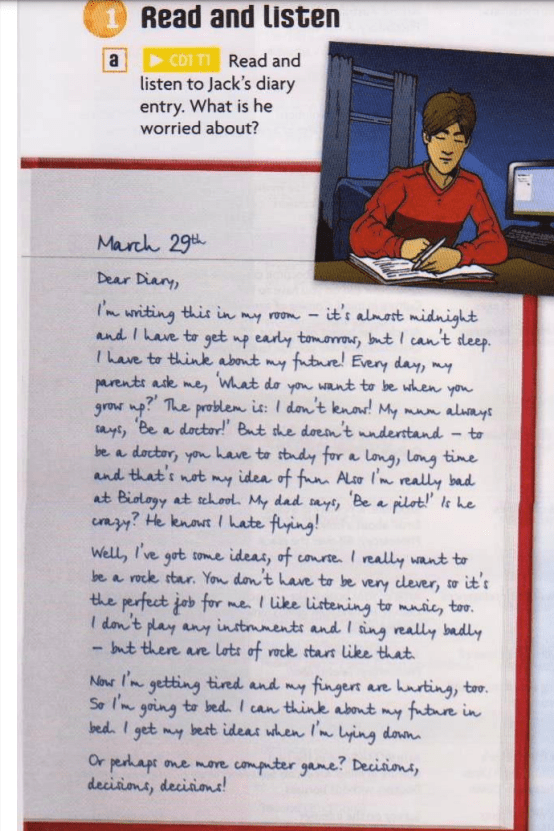 1 Read and listen
a ▶ CD1 T1 Read and
listen to Jack's diary
entry. What is he
worried about?
March 29th
Dear Diary,
I'm writing this in my room – it's almost midnight
and I have to get up early tomorrow, but I can't sleep.
I have to think about my future! Every day, my
parents ask me, 'What do you want to be when you
grow up?' The problem is: I don't know! My mum always
says, 'Be a doctor!' But she doesn't understand – to
be a doctor, you have to study for a long, long time
and that's not my idea of fun. Also I'm really bad
at Biology at school. My dad says, 'Be a pilot!' Is he
crazy? He knows I hate flying!
Well, I've got some ideas, of course. I really want to
be a rock star. You don't have to be very clever, so it's
the perfect job for me. I like listening to music, too.
I don't play any instruments and I sing really badly
– but there are lots of rock stars like that.
Now I'm getting tired and my fingers are hurting, too.
So I'm going to bed. I can think about my future in
bed. I get my best ideas when I'm lying down.
Or perhaps one more computer game? Decisions,
decisions, decisions!